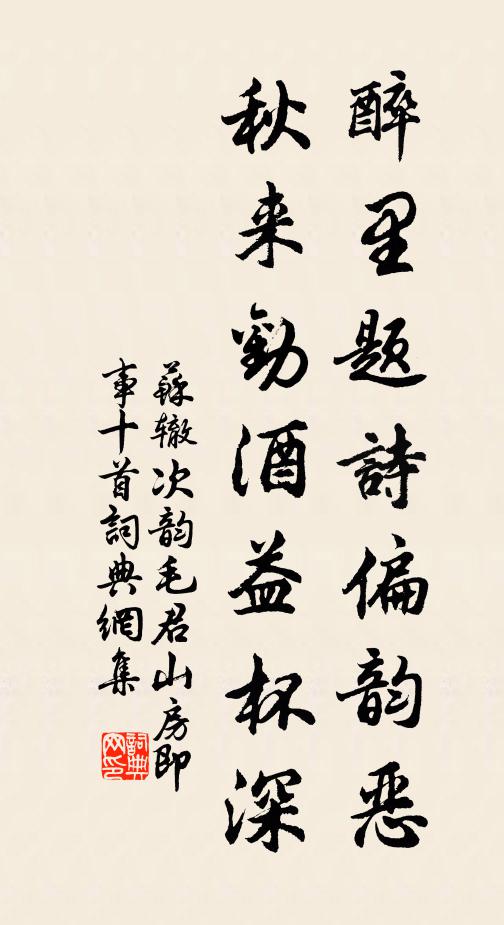 醉里题詩偏韵恶
秋来勸酒益杯深
蘇辙次韵毛君山房即
事十首詞典網集
詞典
网印